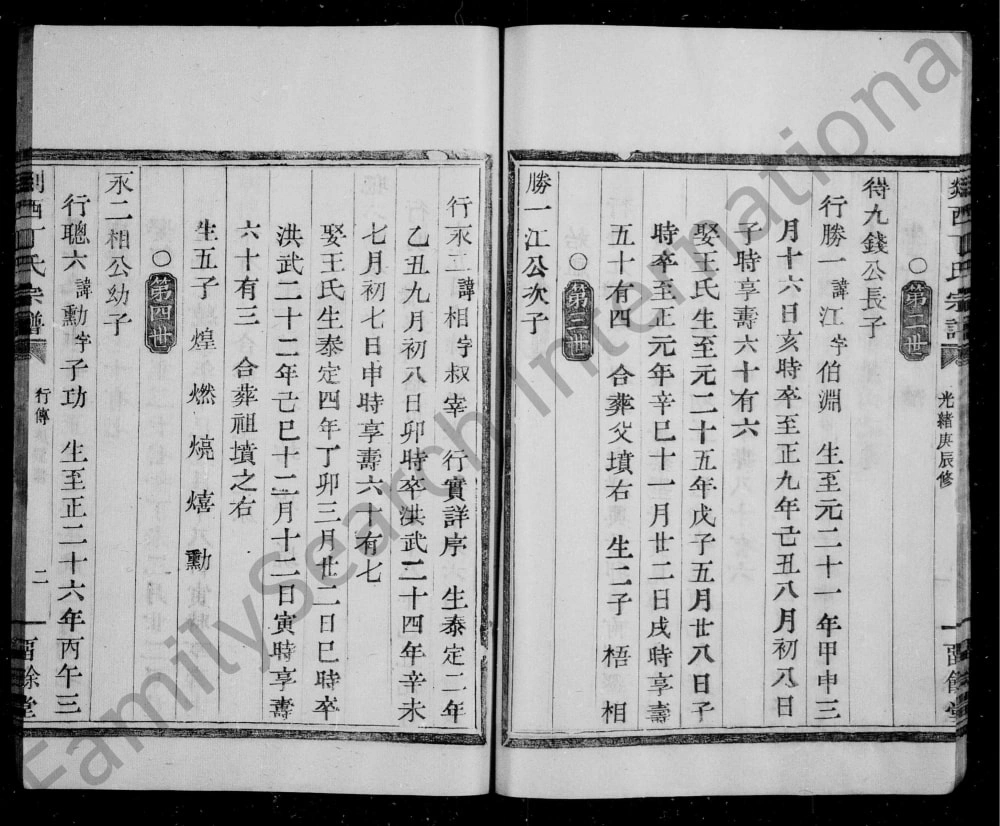 光緒庚辰修
一
畱餘堂
○第二世
待九錢公長子
行勝一諱江字伯淵 生至元二十一年甲申三
月十六日亥時卒至正九年己丑八月初八日
子時享壽六十有六
娶王氏生至元二十五年戊子五月廿八日子
時卒至正元年辛巳十一月廿二日戌時享壽
五十有四 合葬父墳右 生二子 梧 相
○第三世
勝一江公次子
行永二諱相字叔宰 行實詳序 生泰定二年
乙丑九月初八日卯時卒洪武二十四年辛未
七月初七日申時享壽六十有七
娶王氏生泰定四年丁卯三月廿二日巳時卒
洪武二十二年己巳十二月十二日寅時享壽
六十有三 合葬祖墳之右
生五子 煌 燃 燒 熺 勳
○第四世
永二相公幼子
行聰六諱勳字子功 生至正二十六年丙午三
剡西丁氏宗譜
行傳
二
畱餘堂
FamilySearch International